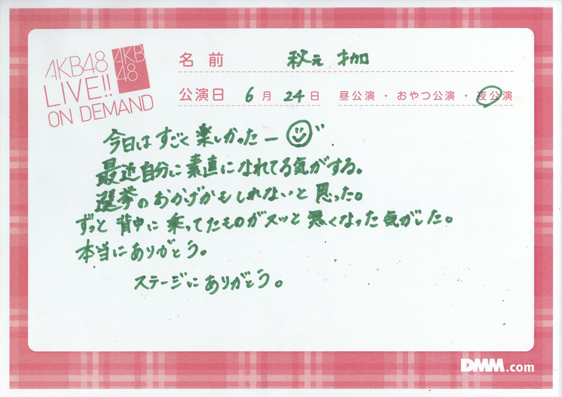 AKB48
LIVE!!
ON DEMAND
AKB
48
名前 秋元 才加
公演日 6月24日 昼公演・おやつ公演・夜公演
今日はすごく楽しかったー
最近自分に素直になれてる気がする。
選挙のおかげかもしれないと思った。
ずっと背中に乗ってたものがスッと無くなった気がした。
本当にありがとう。
ステージにありがとう。
DMM.com